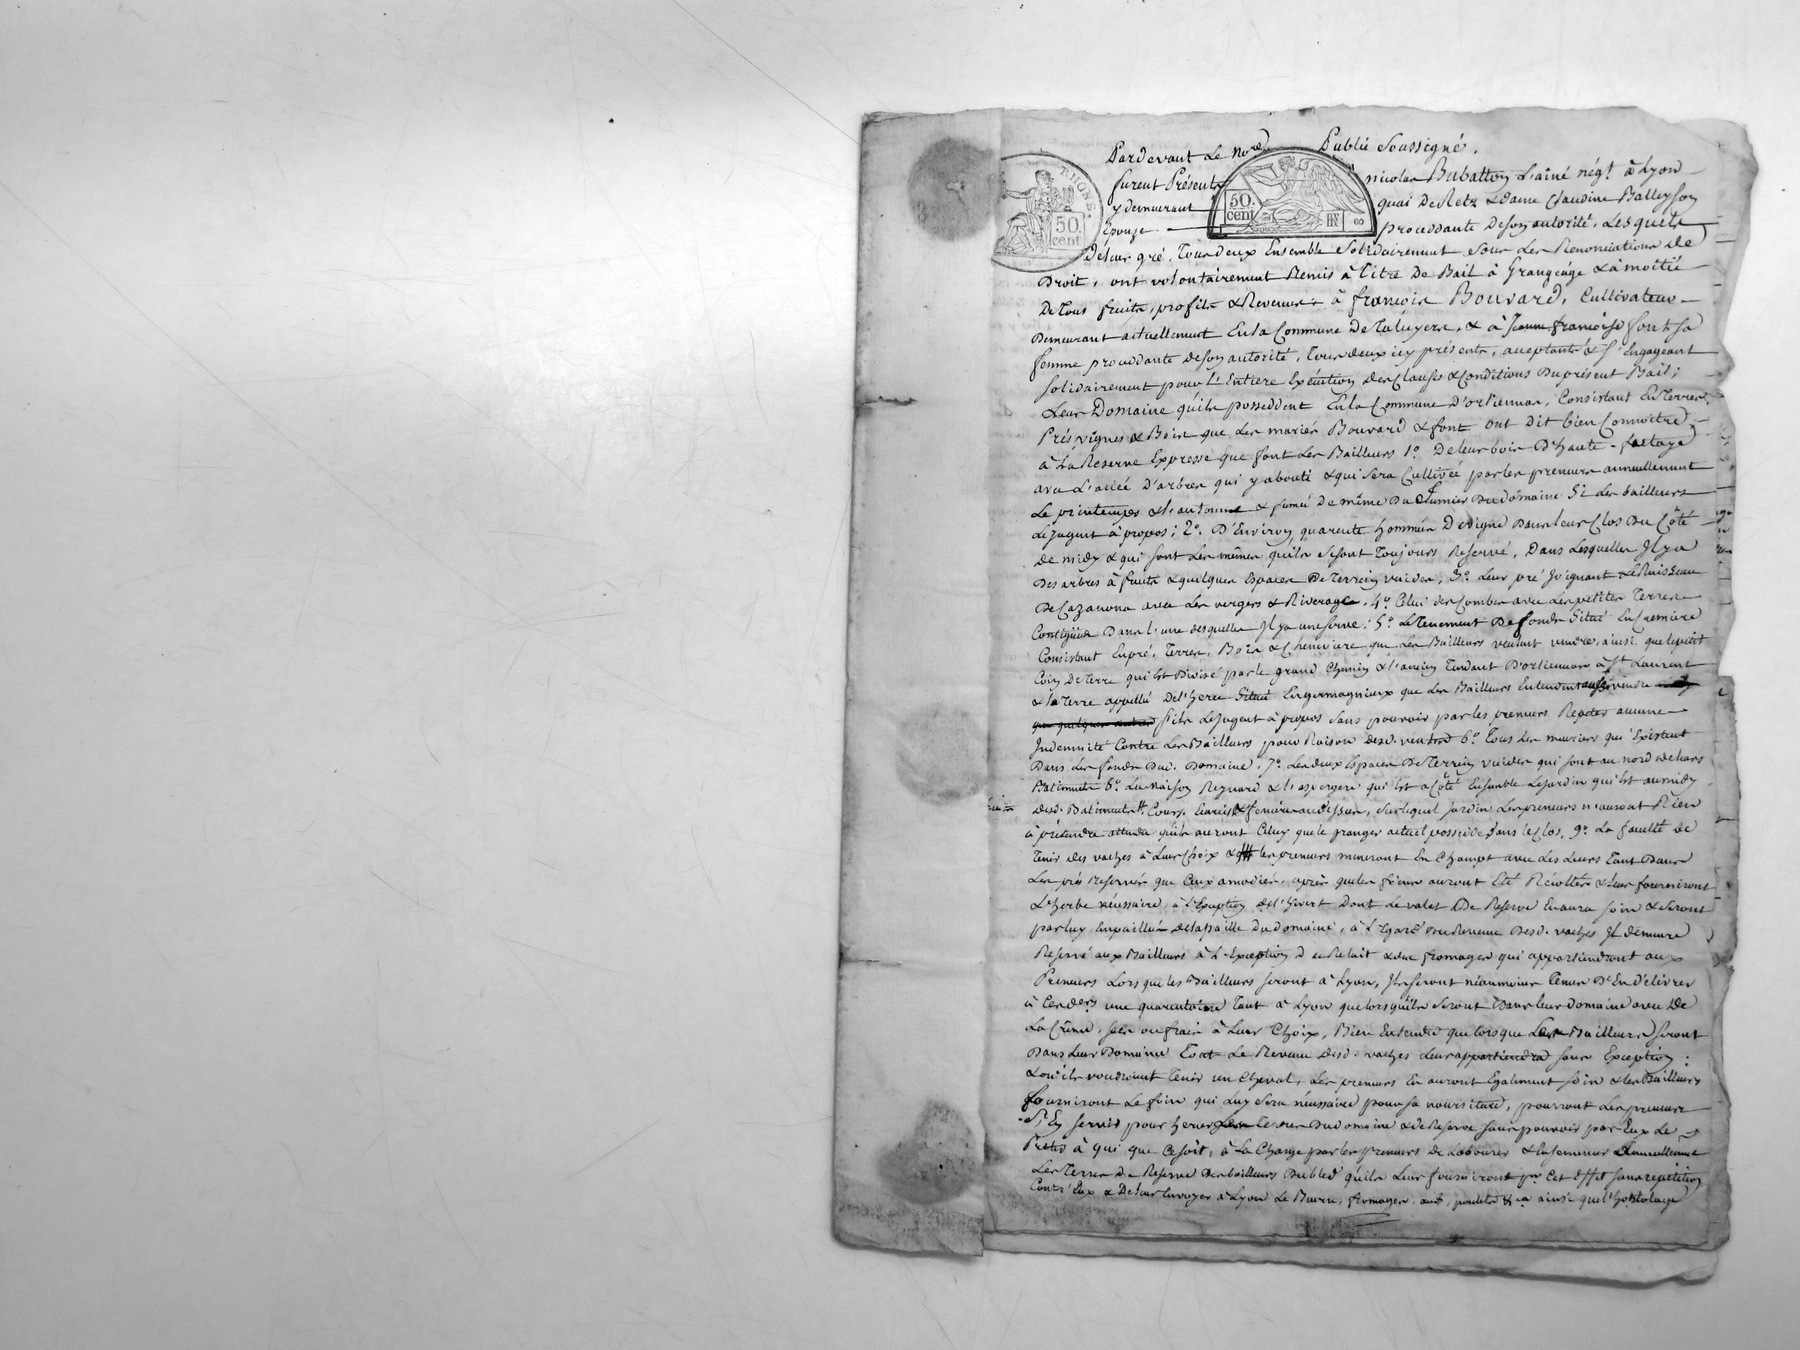 Pardevant Le No.re Public Soussigné,
furent Présents nicolas Bubatton L'aîné nég.t à Lyon
y demeurant quai De Retz & dame Claudine Balleyson
épouze procedante De son autorité, Lesquels
De leur gré, Tous deux Ensemble Solidairement sous Les Renonciations De
Droit, ont volontairement Remis à titre De Bail à Grangeage & à moitié
De Tous fruits, profits & Revenus à françois Bouvard, Cultivateur
Demeurant actuellement En la Commune De Taluyers, & à Jeanne françoise font sa
femme procedante de son autorité, Tous deux icy présents, acceptants & S'Engageant
solidairement pour L'Entiere Exécution des Clauses & Conditions Du présent Bail ;
Leur Domaine qu'ils possedent En la Commune D'orlienas, Consistant En Terres,
Prés vignes & Bois que Les mariés Bouvard & font ont dit bien Connoître,
à La Reserve Expresse que font Les Bailleurs 1.o De leur bois D'haute-futaye
avec L'allée D'arbres qui y aboutit & qui sera Cultivée par les preneurs annuellement
Le printemps & l'automne & fumée De même Du fumier Du domaine Si Les bailleurs
Le jugent à propos ; 2.o D'Environ quarente hommées De vigne Dans leur Clos Du Côté
de midy & qui sont Les mêmes qu'ils se sont Toujours Reservé, Dans Lesquelles Il y a
Des arbres à fruits & quelques Espaces De Terrein vuides, 3.o Leur pré Joignant Le Ruisseau
De Cazanona avec Les vergers & Riverage, 4.o Celui des Combes avec Les petites Terres
Contigües Dans l'une desquelles Il y a une serve ; 5.o Le Tenement De fonds Situé
Consistant En pré, Terres, Bois & Cheneviere que Les Bailleurs veulent vendre, ainsi que le petit
Coin De Terre qui Est Divisé par le grand Chemin & l'ancien Tendant D'orlienas à S.t Laurent
& la Terre appellé De l'herse Situé que Les Bailleurs Entendent aussi vendre
s'ils Le jugent à propos Sans pouvoir par les preneurs Repeter aucune
Indemnité Contre Les Bailleurs pour Raison desd. ventes 6.o Tous Les muriers qui Existent
Dans Les fonds Dud. Domaine, 7.o Les deux Espaces De Terrein vuides qui sont au nord de leurs
Batiments 8.o La Maison Reynard & l'aspergere qui Est à Côté Ensemble Le jardin qui Est au midy
desd. Batiments, Cours, & feniere au dessus, sur lequel jardin Les preneurs n'auront Rien
à prétendre attendu qu'ils auront Celuy que le granger actuel possede dans le Clos, 9.o La faculté de
Tenir des vaches à Leur Choix & les preneurs meneront En Champt avec Les Leurs Tant Dans
Les prés Reservés que Ceux amodiés, après que les foins auront Eté Récoltés & leur fourniront
L'herbe necessaire, à l'Exception De l'hivert Dont Le valet De Reserve En aura soin & seront
par luy Empaillées de la paille Du domaine, à L'Egard Du Revenu Desd. vaches Il demeure
Reservé aux Bailleurs à L'Exception Du Relait & des fromages qui appartiendront aux
Preneurs Lorsque les Bailleurs seront à Lyon, Ils seront néanmoins Tenus D'En délivrer
à Ces dern.s une quarantaine Tant à Lyon que lorsqu'ils seront Dans leur Domaine avec De
La Crême, secs ou frais à Leur Choix, Bien Entendu que lorsque Les Bailleurs seront
Dans Leur Domaine Tout Le Revenu desd. vaches Leur appartiendra sans Exception ;
& où ils voudroient Tenir un Cheval, Les preneurs En auront Egalement soin & les Bailleurs
fourniront Le foin qui Luy sera nécessaire pour sa nourriture, pourront Les preneurs
S'En servir pour herser Les Terres Du domaine & de Reserve sans pouvoir par Eux Le
Preter à qui que Ce soit, à La Charge par les preneurs De Labourer & Ensemencer Annuellement
Les Terres De Reserve Des bailleurs Du bled qu'ils Leur fourniront p.r Cet Effet sans repetition
Contr'Eux & De leur Envoyer à Lyon Le Beurre, fromages, œufs, poulets & a ainsi que l'hortolage
RHONE.
50. cent
50. cent
RF
60